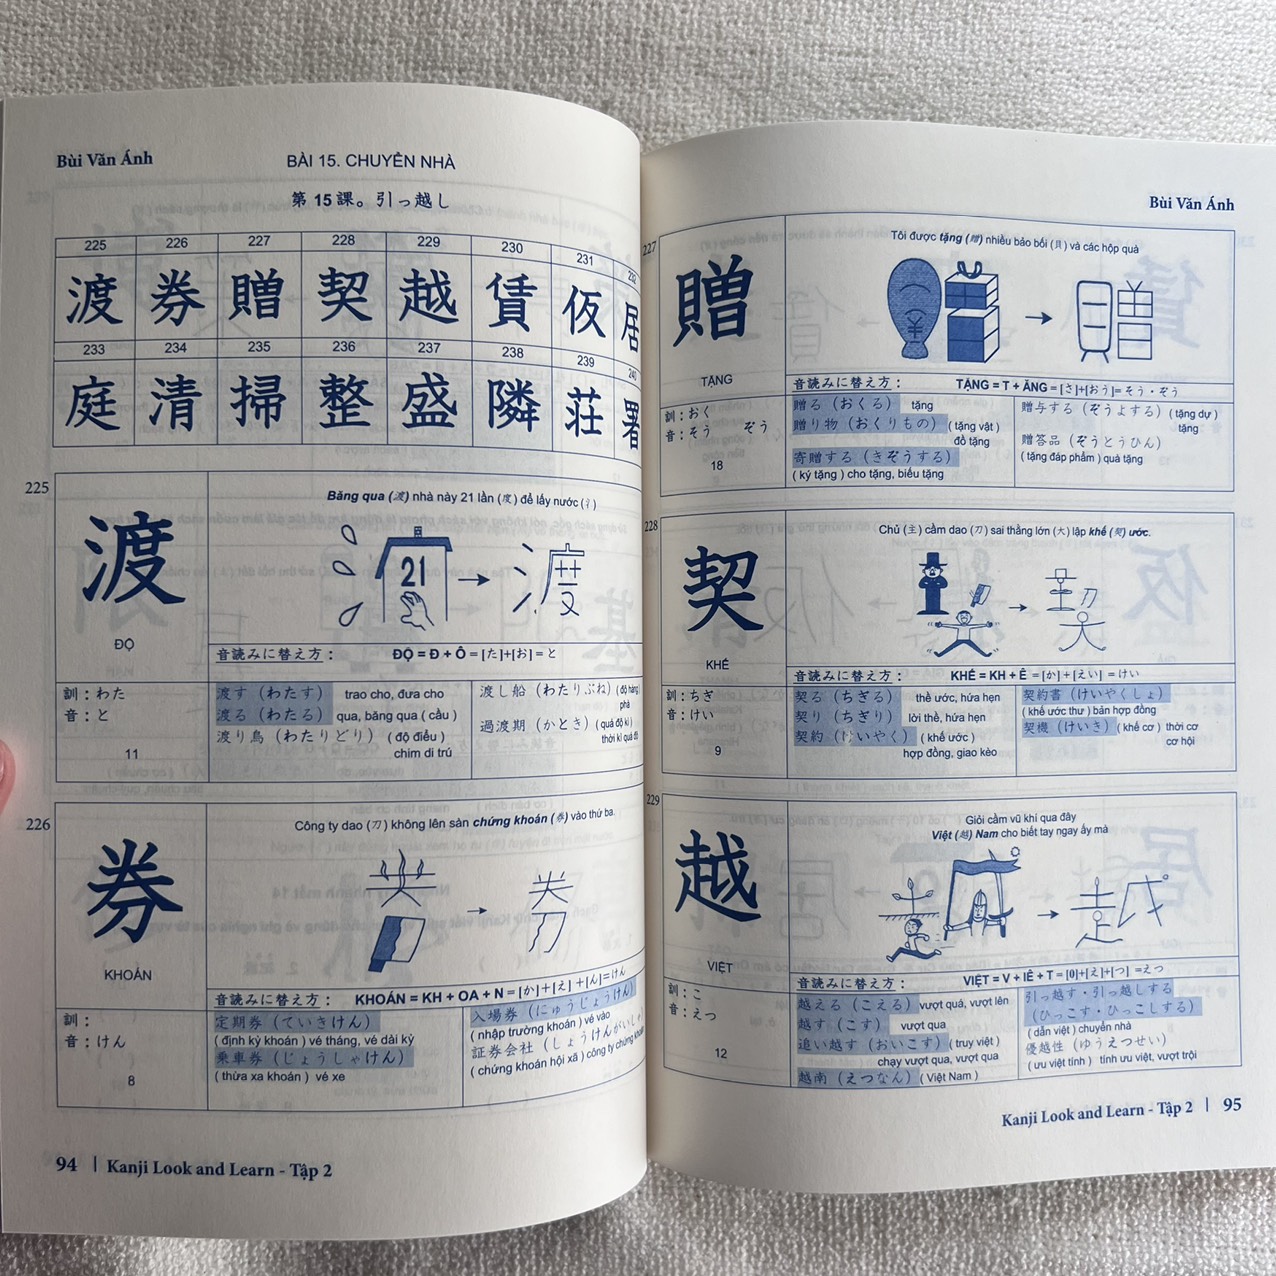 Bùi Văn Ánh
BÀI 15. CHUYỂN NHÀ
第 15 課。引っ越し
225 226 227 228 229 230 231 232
渡 券 贈 契 越 賃 仮 居
233 234 235 236 237 238 239 240
庭 清 掃 整 盛 隣 荘 署
225
渡
ĐỘ
Băng qua (渡) nhà này 21 lần (度) để lấy nước (氵)
21
音読みに替え方： ĐỘ = Đ + Ô = [た]+[お] = と
訓：わた
音：と
11
渡す（わたす） trao cho, đưa cho
渡る（わたる） qua, băng qua ( cầu )
渡り鳥（わたりどり） ( độ điểu )
chim di trú
渡し船（わたりぶね） ( độ hàng )
phà
過渡期（かとき） ( quá độ kì )
thời kì quá độ
226
券
KHOÁN
Công ty dao (刀) không lên sàn chứng khoán (券) vào thứ ba.
音読みに替え方： KHOÁN = KH + OA + N = [か]+[え] +[ん]= けん
訓：
音：けん
8
定期券（ていきけん）
( định kỳ khoán ) vé tháng, vé dài kỳ
乗車券（じょうしゃけん）
( thừa xa khoán ) vé xe
入場券（にゅうじょうけん）
( nhập trường khoán ) vé vào
証券会社（しょうけんがいしゃ
( chứng khoán hội xã ) công ty chứng khoán
94 | Kanji Look and Learn - Tập 2
Bùi Văn Ánh
227
贈
TẶNG
Tôi được tặng (贈) nhiều bảo bối (貝) và các hộp quà
¥
音読みに替え方： TẶNG = T + ĂNG = [さ]+[おう]= そう・ぞう
訓：おく
音：そう ぞう
18
贈る（おくる） tặng
贈り物（おくりもの） ( tặng vật )
đồ tặng
寄贈する（きぞうする）
( ký tặng ) cho tặng, biếu tặng
贈与する（ぞうよする） ( tặng dự )
tặng
贈答品（ぞうとうひん）
( tặng đáp phẩm ) quà tặng
228
契
KHẾ
Chủ (主) cầm dao (刀) sai thằng lớn (大) lập khế (契) ước.
音読みに替え方： KHẾ = KH + Ê = [か] + [えい] = けい
訓：ちぎ
音：けい
9
契る（ちぎる） thề ước, hứa hẹn
契り（ちぎり） lời thề, hứa hẹn
契約（けいやく） ( khế ước )
hợp đồng, giao kèo
契約書（けいやくしょ）
( khế ước thư ) bản hợp đồng
契機（けいき） ( khế cơ ) thời cơ
cơ hội
229
越
VIỆT
Giỏi cầm vũ khí qua đây
Việt (越) Nam cho biết tay ngay ấy mà
音読みに替え方： VIỆT = V + IÊ + T = [0]+[え]+[つ] =えつ
訓：こ
音：えつ
12
越える（こえる） vượt quá, vượt lên
越す（こす） vượt qua
追い越す（おいこす） ( truy việt )
chạy vượt qua, vượt qua
越南（えつなん） ( Việt Nam )
引っ越す・引っ越しする
（ひっこす・ひっこしする）
( dẫn việt ) chuyển nhà
優越性（ゆうえつせい）
( ưu việt tính ) tính ưu việt, vượt trội
Kanji Look and Learn - Tập 2 | 95